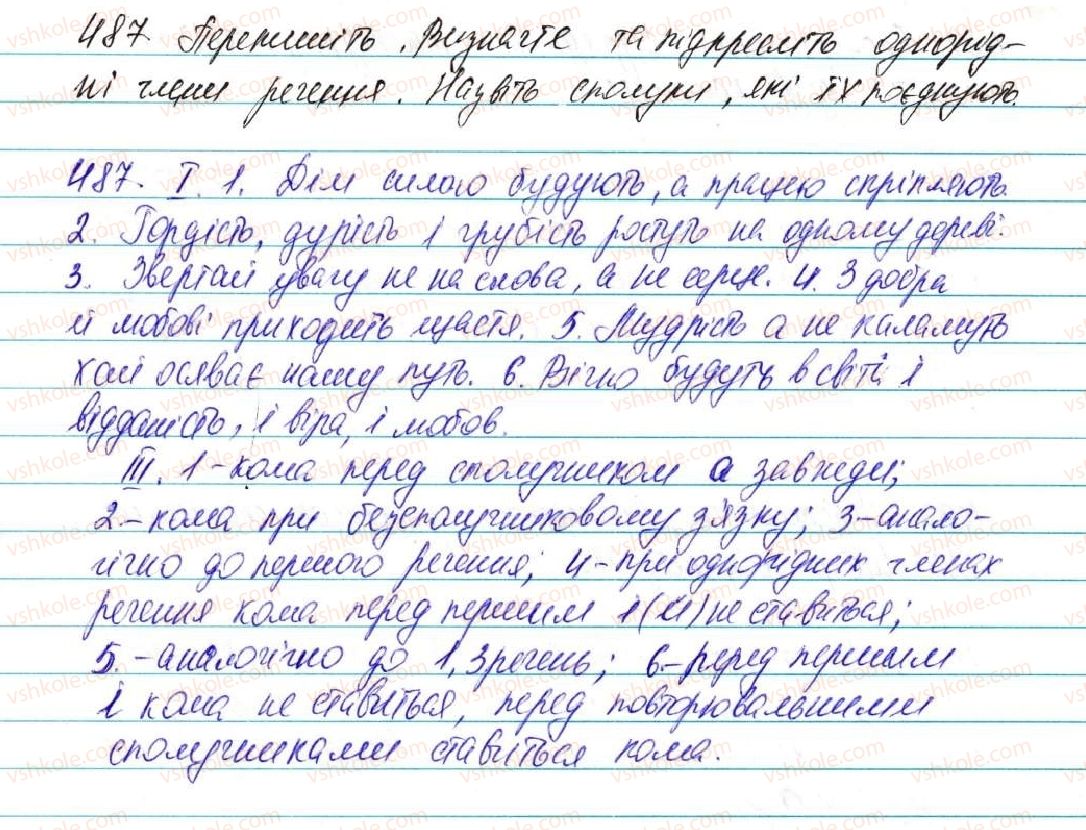 487. Перепишіть. Визначте та підкресліть однорід-
ні члени речення. Назвіть сполуки, які їх поєднують.
487. I. 1. Дім силою будують, а працею скріпляють.
2. Гордість, дурість і грубість ростуть на одному дереві.
3. Звертай увагу не на слова, а не серце. 4. З добра
й любові приходить щастя. 5. Мудрість а не каламуть
хай осяває нашу путь. 6. Вічно будуть в світі і
відданість, і віра, і любов.
III. 1 - кома перед сполучником а завжди;
2. - кома при безсполучниковому зв'язку; 3 - анало-
гічно до першого речення; 4 - при однорідних членах
речення кома перед першим і (й) не ставиться;
5. - аналогічно до 1, 3 речень; 6. - перед першим
і кома не ставиться, перед повторювальними
сполучниками ставиться кома.